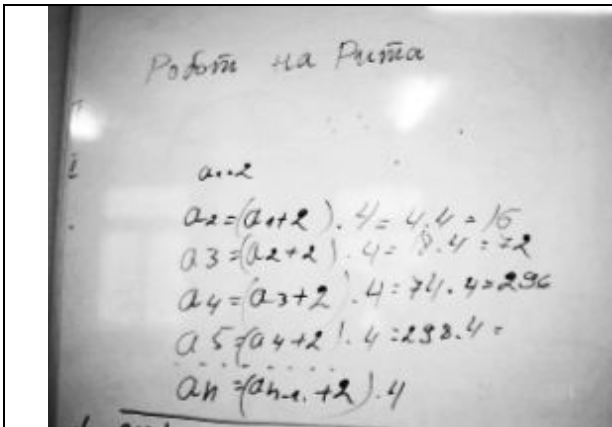 Робот на Рита
a₁=2
a₂=(a₁+2).4=4.4=16
a3=(a₂+2).4=18.4=72
a₄=(a₃+2).4=74.4=296
a5=(a₄+2).4=298.4=
aₙ=(aₙ₋₁+2).4